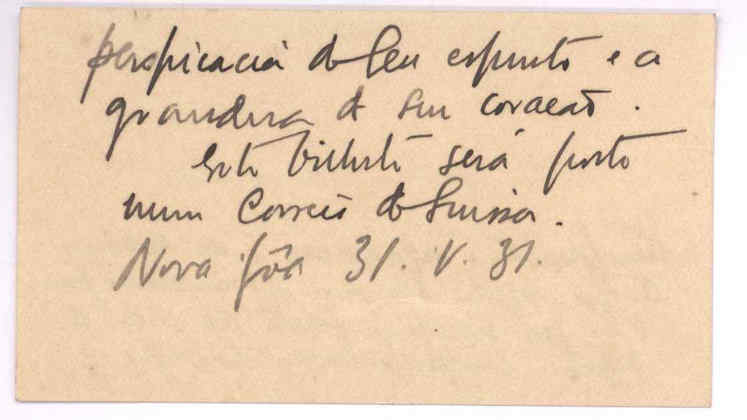 perspicacia do seu espirito e a
grandeza de seu coração.
Este bilhete será posto
num Correio da Suissa.
Nova Gôa 31. V. 31.